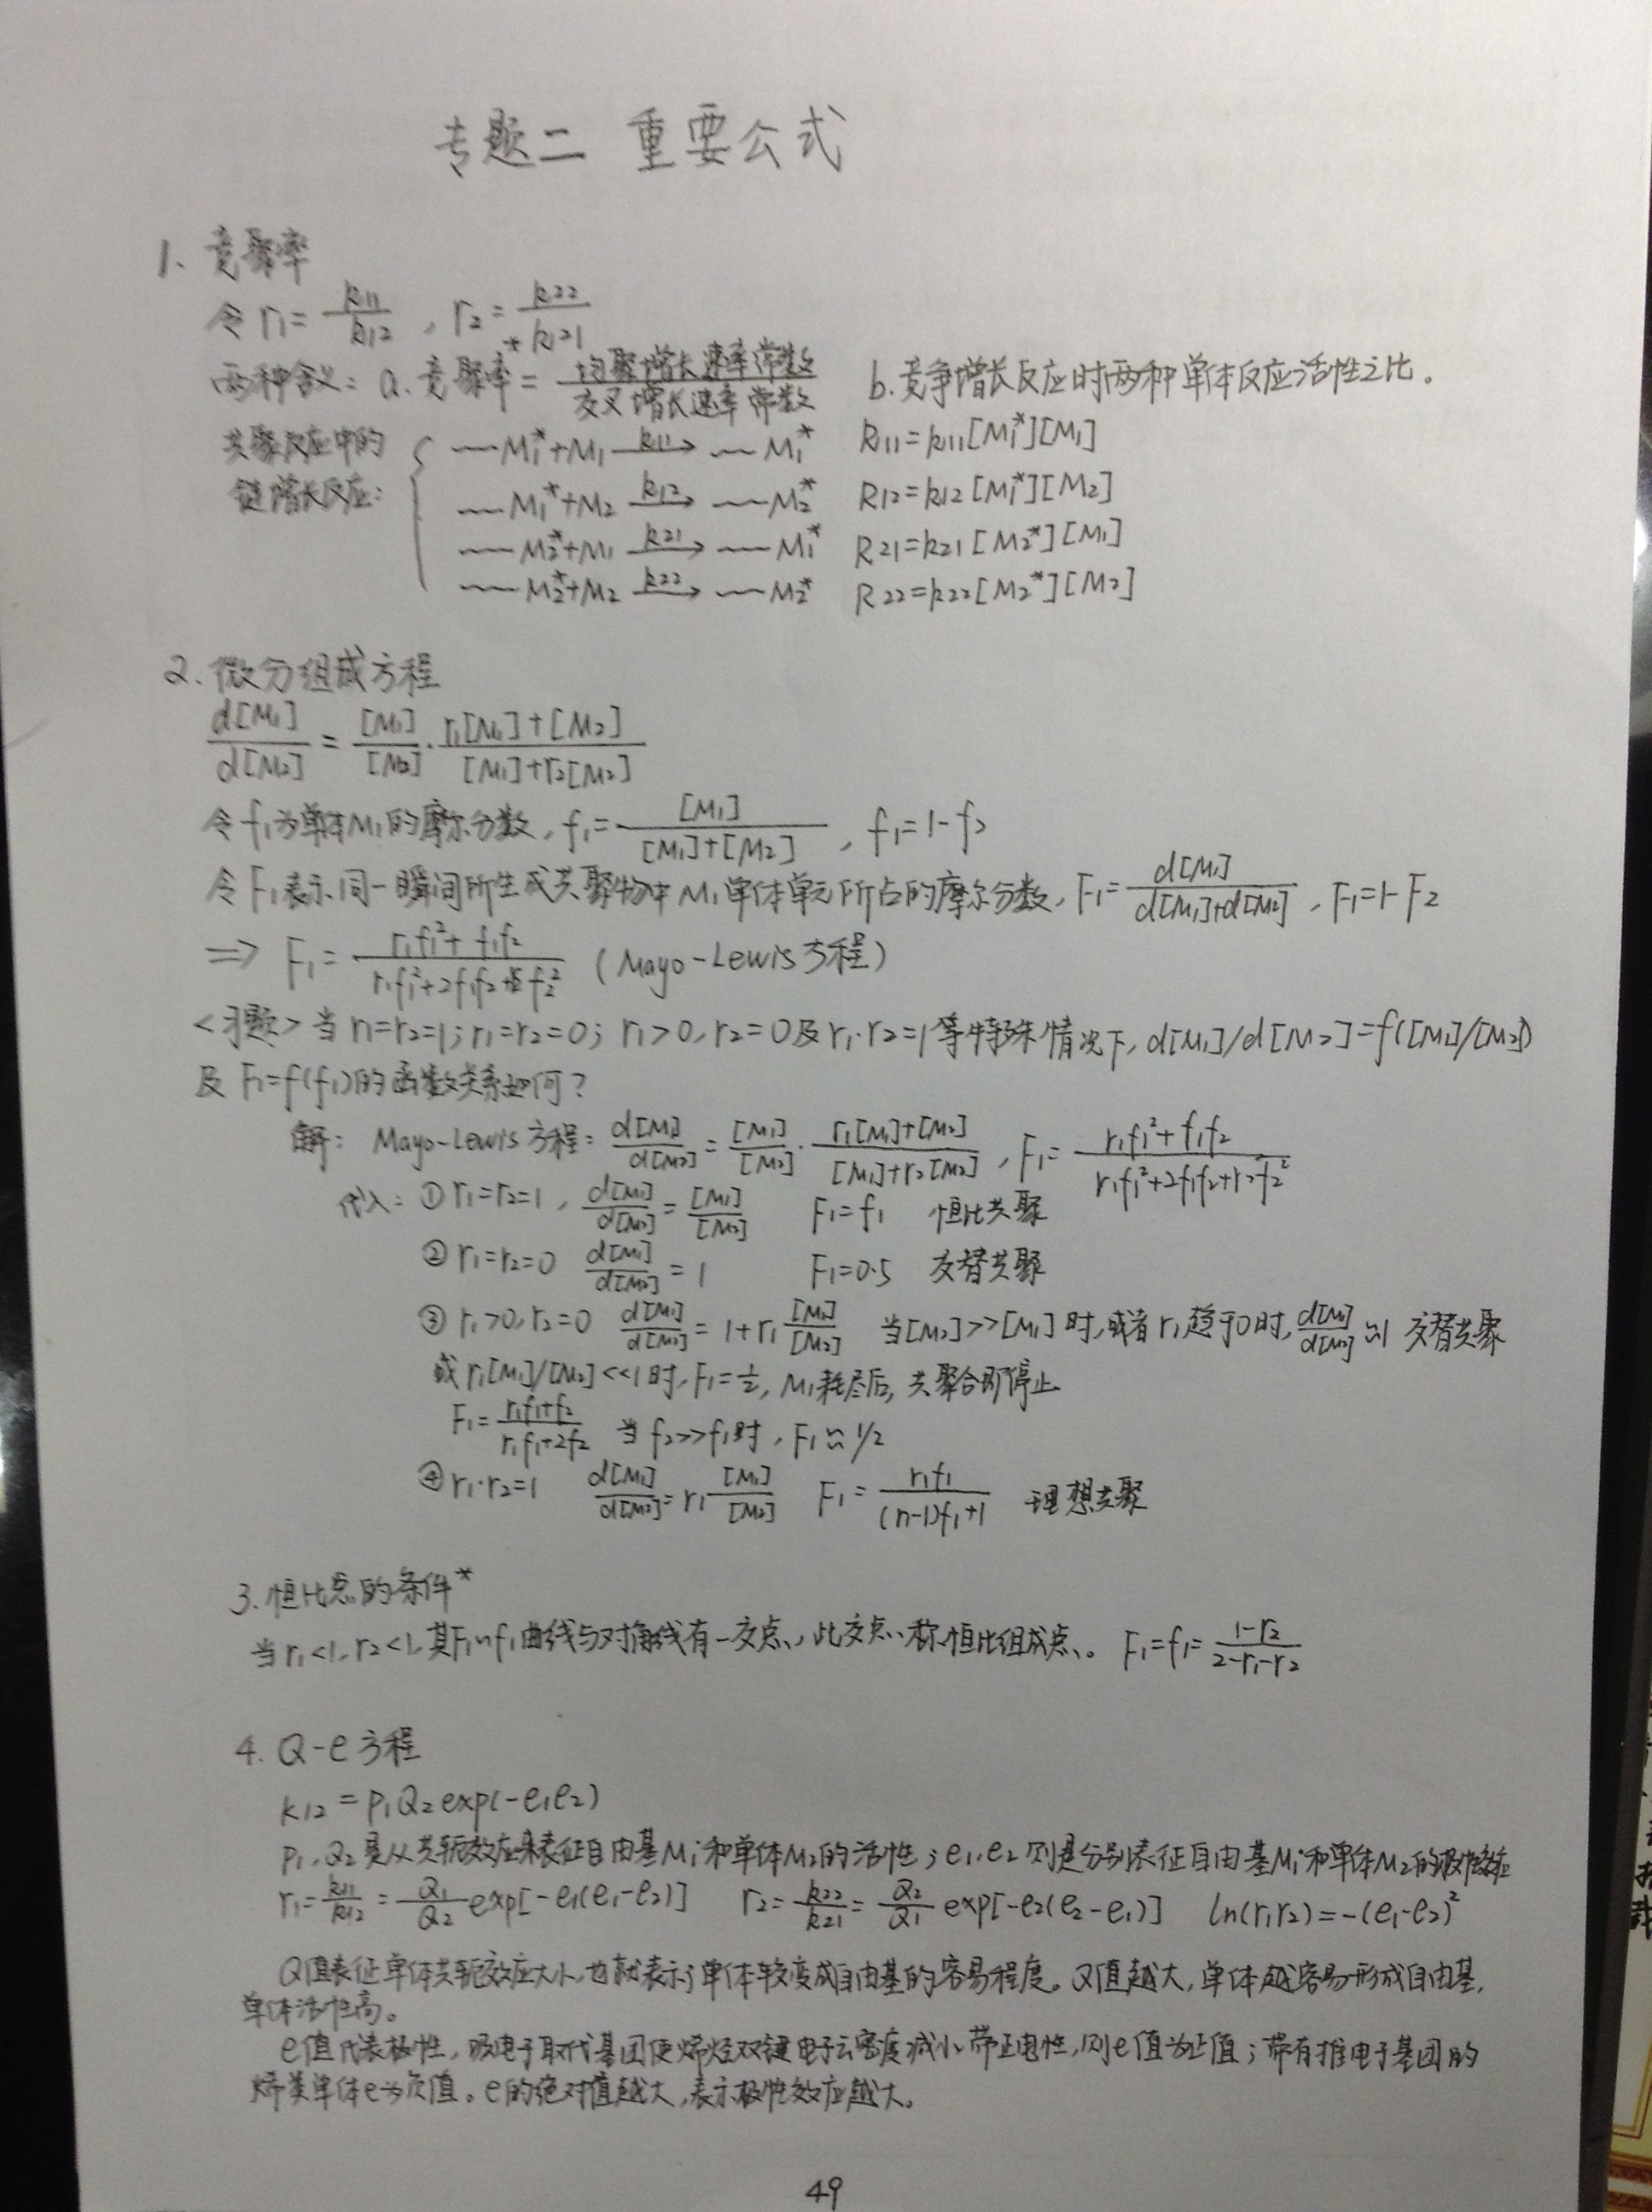 专题二 重要公式
1、竞聚率
令 r1 = k11/k12 , r2 = k22/k21
两种含义: a. 竞聚率 = 均聚增长速率常数/交叉增长速率常数 b. 竞争增长反应时两种单体反应活性之比。
共聚反应中的链增长反应:
~~M1*+M1 —k11→ ~~M1* R11=k11[M1*][M1]
~~M1*+M2 —k12→ ~~M2* R12=k12[M1*][M2]
~~M2*+M1 —k21→ ~~M1* R21=k21[M2*][M1]
~~M2*+M2 —k22→ ~~M2* R22=k22[M2*][M2]
2. 微分组成方程
d[M1]/d[M2] = [M1]/[M2] · (r1[M1]+[M2])/([M1]+r2[M2])
令f1为单体M1的摩尔分数, f1 = [M1]/([M1]+[M2]) , f1=1-f2
令F1表示同一瞬间所生成共聚物中M1单体单元所占的摩尔分数, F1 = d[M1]/(d[M1]+d[M2]) , F1=1-F2
⟹ F1 = (r1f1²+f1f2)/(r1f1²+2f1f2+r2f2²) (Mayo-Lewis方程)
<习题> 当 r1=r2=1; r1=r2=0; r1>0, r2=0及r1·r2=1等特殊情况下, d[M1]/d[M2]=f([M1]/[M2])
及 F1=f(f1)的函数关系如何?
解: Mayo-Lewis方程: d[M1]/d[M2] = [M1]/[M2] · (r1[M1]+[M2])/([M1]+r2[M2]) , F1 = (r1f1²+f1f2)/(r1f1²+2f1f2+r2f2²)
代入: ① r1=r2=1, d[M1]/d[M2] = [M1]/[M2] F1=f1 恒比共聚
② r1=r2=0 d[M1]/d[M2] = 1 F1=0.5 交替共聚
③ r1>0, r2=0 d[M1]/d[M2] = 1+r1[M1]/[M2] 当[M2]>>[M1]时, 或者r1趋于0时, d[M1]/d[M2]≈1 交替共聚
或 r1[M1]/[M2]<<1时, F1=1/2, M1耗尽后, 共聚合即停止
F1 = (r1f1+f2)/(r1f1+2f2) 当f2>>f1时, F1≈1/2
④ r1·r2=1 d[M1]/d[M2] = r1[M1]/[M2] F1 = r1f1/((r1-1)f1+1) 理想共聚
3. 恒比点的条件*
当r1<1, r2<1, 其F1~f1曲线与对角线有一交点, 此交点称恒比组成点。 F1=f1=(1-r2)/(2-r1-r2)
4. Q-e方程
k12 = P1Q2exp(-e1e2)
P1、Q2是从共轭效应来表征自由基M1·和单体M2的活性; e1、e2则是分别表征自由基M1·和单体M2的极性效应
r1 = k11/k12 = Q1/Q2 exp[-e1(e1-e2)] r2 = k22/k21 = Q2/Q1 exp[-e2(e2-e1)] ln(r1r2)=-(e1-e2)²
Q值表征单体共轭效应大小, 也就表示了单体转变成自由基的容易程度。Q值越大, 单体越容易形成自由基,
单体活性高。
e值代表极性, 吸电子取代基团使烯烃双键电子云密度减小, 带正电性, 则e值为正值; 带有推电子基团的
烯类单体e为负值。e的绝对值越大, 表示极性效应越大。
49